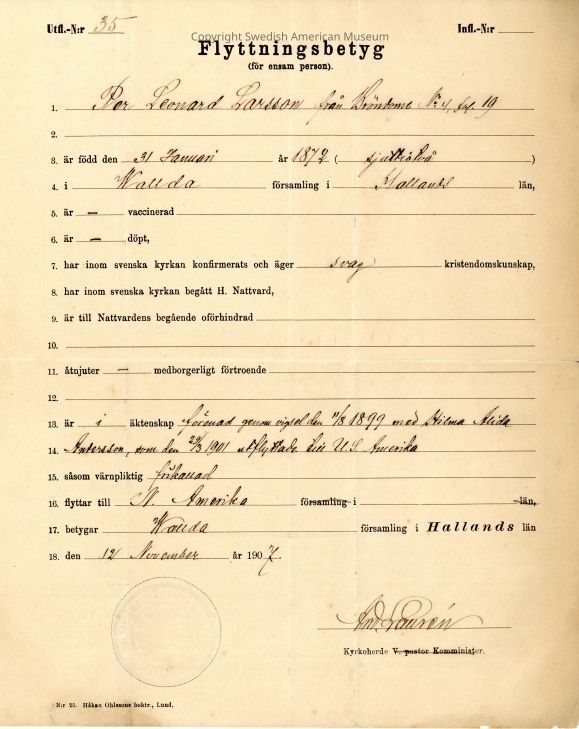 Copyright Swedish American Museum
Utfl.-N:r 35 Infl.-N:r
Flyttningsbetyg
(för ensam person).
1. Per Leonard Larsson från N:o 4, fol. 19
2.
3. är född den 31 Januari år 1872 (sjuttiotvå)
4. i Wallda församling i Hallands län,
5. är — vaccinerad
6. är — döpt,
7. har inom svenska kyrkan konfirmerats och äger svag kristendomskunskap,
8. har inom svenska kyrkan begått H. Nattvard,
9. är till Nattvardens begående oförhindrad
10.
11. åtnjuter — medborgerligt förtroende
12.
13. är i äktenskap förenad genom vigsel den 11/8 1899 med Hilma Alida
14. Andersson, som den 29/3 1901 utflyttade till U.S. Amerika
15. såsom värnpliktig frikallad
16. flyttar till N. Amerika församling i län,
17. betygar Wallda församling i Hallands län
18. den 12 November år 1907.
And. Laurén
Kyrkoherde V. pastor Komminister.
N:r 25. Håkan Ohlssons boktr., Lund.